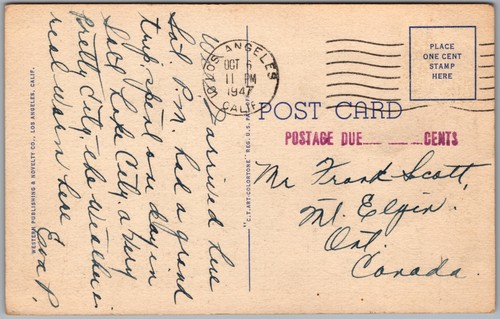 We arrived here
Sat. P.M. had a grand
trip spent one day in
Salt Lake City. a very
Pretty City, the weather is
real warm here
Eva P.
WESTERN PUBLISHING & NOVELTY CO., LOS ANGELES, CALIF.
"C.T. ART-COLORTONE" REG. U.S. PAT. OFF.
LOS ANGELES
OCT 6
11 PM
1947
CALIF.
PLACE
ONE CENT
STAMP
HERE
POST CARD
POSTAGE DUE ____ CENTS
Mr Frank Scott,
Mt. Elgin.
Ont.
Canada.